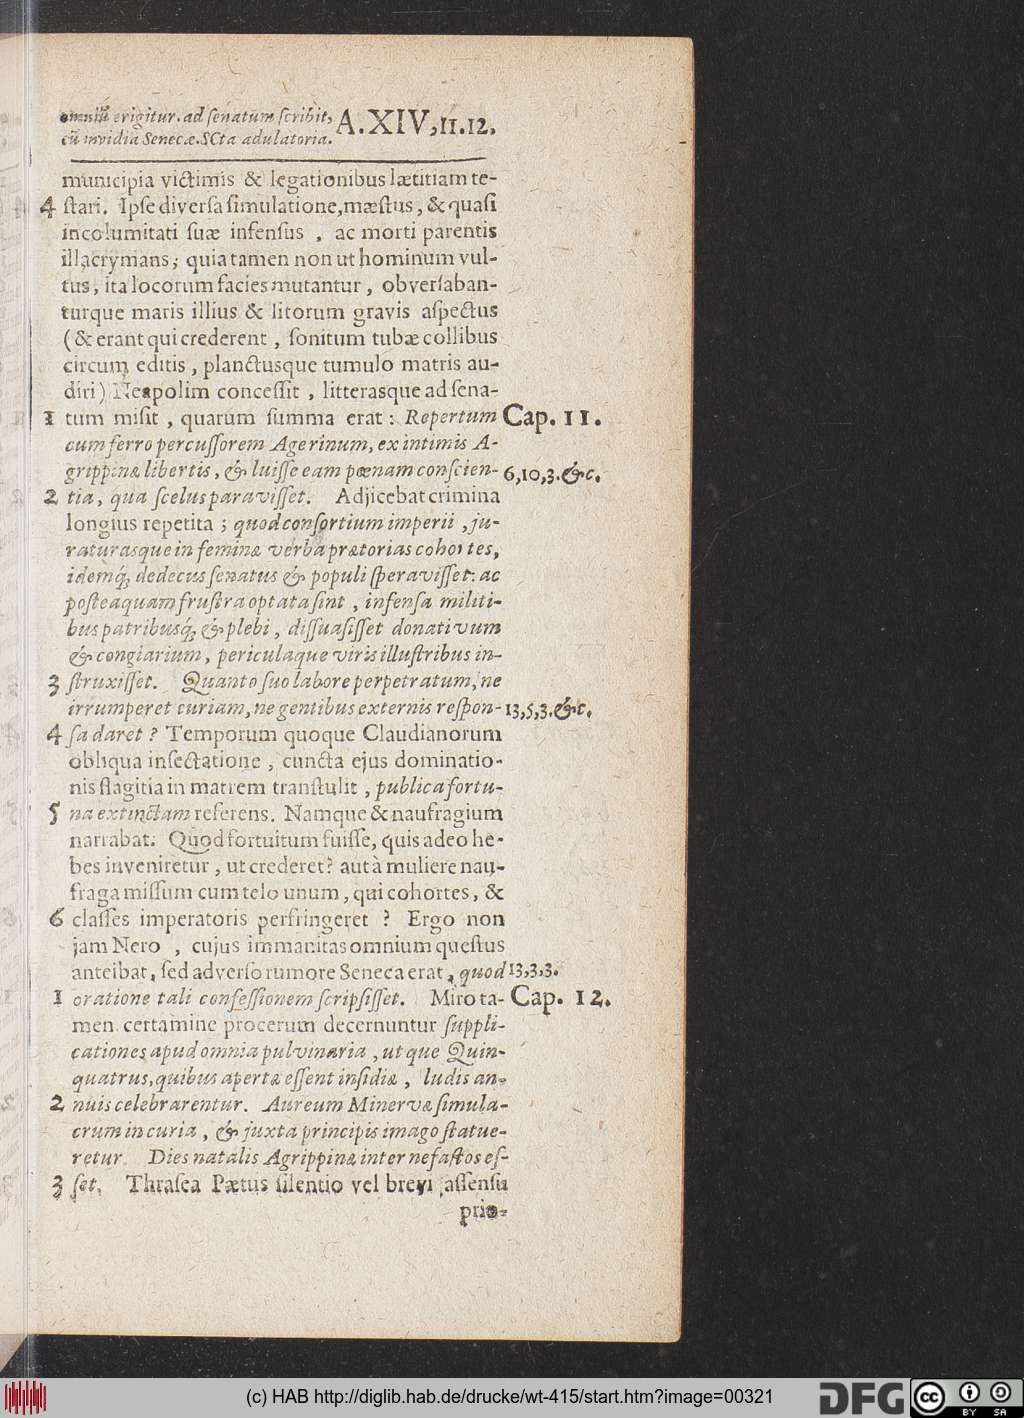 omniū erigitur. ad ſenatum ſcribit,
cū invidia Senecæ. SCta adulatoria.
A. XIV, 11. 12.
municipia victimis & legationibus lætitiam te-
4 ſtari. Ipſe diverſa ſimulatione, mæſtus, & quaſi
incolumitati ſuæ infenſus , ac morti parentis
illacrymans; quia tamen non ut hominum vul-
tus, ita locorum facies mutantur , obverſaban-
turque maris illius & litorum gravis aſpectus
(& erant qui crederent , ſonitum tubæ collibus
circum editis , planctusque tumulo matris au-
diri) Neapolim conceſſit , litterasque ad ſena-
1 tum miſit , quarum ſumma erat: Repertum Cap. 11.
cum ferro percuſſorem Agerinum, ex intimis A-
grippinæ libertis, & luiſſe eam pœnam conſcien- 6,10,3. &c.
2 tia, qua ſcelus paraviſſet. Adjicebat crimina
longius repetita ; quod conſortium imperii , ju-
raturasque in feminæ verba prætorias cohortes,
idemq́; dedecus ſenatus & populi ſperaviſſet: ac
poſteaquam fruſtra optata ſint , infenſa militi-
bus patribusq́; & plebi , diſſuaſiſſet donativum
& congiarium, periculaque viris illuſtribus in-
3 ſtruxiſſet. Quanto ſuo labore perpetratum, ne
irrumperet curiam, ne gentibus externis reſpon- 13,5,3. &c.
4 ſa daret ? Temporum quoque Claudianorum
obliqua inſectatione , cuncta ejus dominatio-
nis flagitia in matrem tranſtulit , publica fortu-
5 na extinctam referens. Namque & naufragium
narrabat: Quod fortuitum fuiſſe, quis adeo he-
bes inveniretur , ut crederet? aut à muliere nau-
fraga miſſum cum telo unum, qui cohortes, &
6 claſſes imperatoris perfringeret ? Ergo non
jam Nero , cujus immanitas omnium queſtus
anteibat, ſed adverſo rumore Seneca erat, quod 13,3,3.
1 oratione tali confeſſionem ſcripſiſſet. Miro ta- Cap. 12.
men certamine procerum decernuntur ſuppli-
cationes apud omnia pulvinaria , ut que Quin-
quatrus, quibus apertæ eſſent inſidiæ , ludis an-
2 nuis celebrarentur. Aureum Minervæ ſimula-
crum in curia , & juxta principis imago ſtatue-
retur. Dies natalis Agrippinæ inter nefaſtos eſ-
3 ſet. Thraſea Pætus ſilentio vel brevi aſſenſu
prio-
(c) HAB http://diglib.hab.de/drucke/wt-415/start.htm?image=00321
DFG
cc BY SA